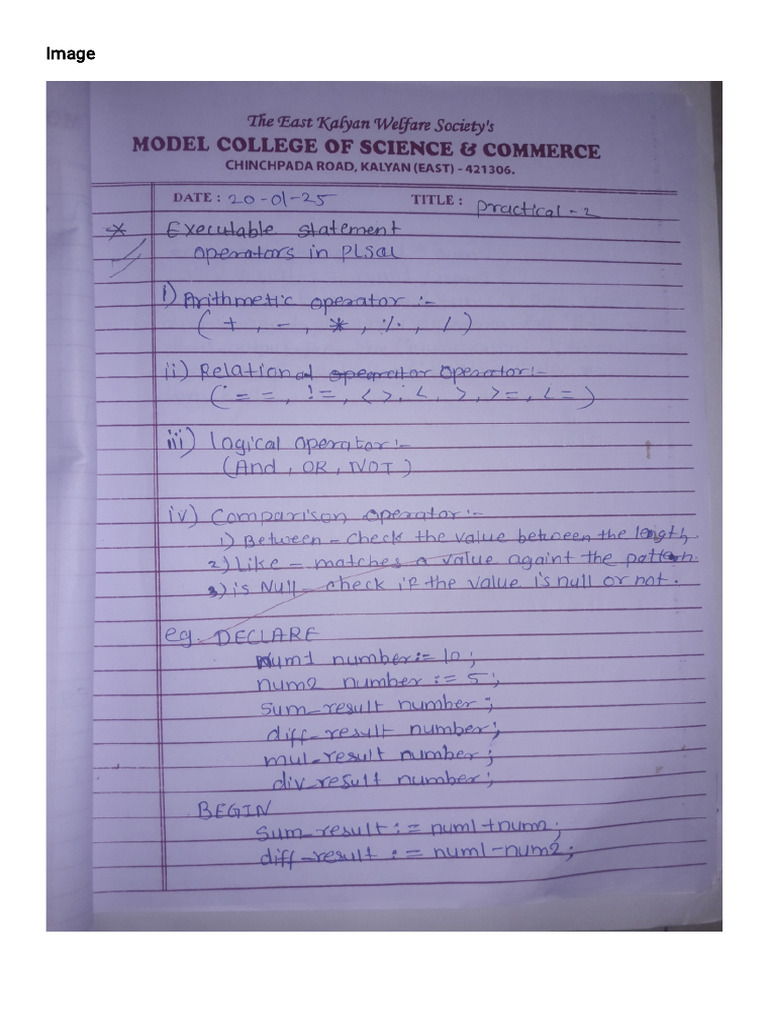 Image
The East Kalyan Welfare Society's
MODEL COLLEGE OF SCIENCE & COMMERCE
CHINCHPADA ROAD, KALYAN (EAST) - 421306.
DATE : 20-01-25 TITLE : practical - 2
* Executable statement
operators in PLSQL
i) Arithmetic operator :-
( + , - , * , % , / )
ii) Relational operator :-
( = = , != , < > , < , > , >= , <= )
iii) Logical operator :-
(And , OR , NOT )
iv) Comparison operator :-
1) Between - check the value between the length.
2) Like - matches a value againt the pattern.
3) is Null - check if the value is null or not.
eg. DECLARE
Num1 number := 10;
num2 number := 5;
sum_result number ;
diff_result number;
mul_result number;
div_result number;
BEGIN
sum_result := num1+num2;
diff_result := num1-num2;